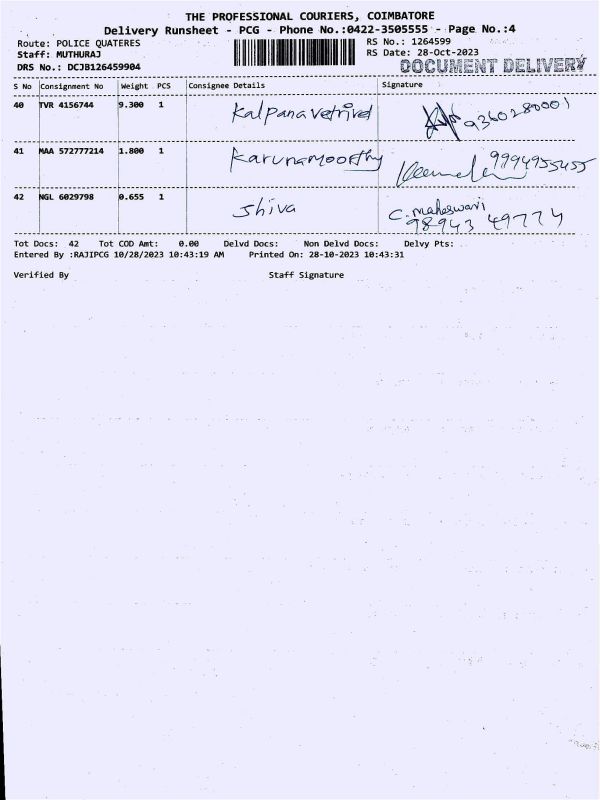 THE PROFESSIONAL COURIERS, COIMBATORE
Delivery Runsheet - PCG - Phone No.:0422-3505555 - Page No.:4
Route: POLICE QUATERES RS No.: 1264599
Staff: MUTHURAJ RS Date: 28-Oct-2023
DRS No.: DCJB126459904 DOCUMENT DELIVERY
S No Consignment No Weight PCS Consignee Details Signature
40 TVR 4156744 9.300 1 Kalpana vetrivel 9360280001
41 MAA 572777214 1.800 1 Karunamoorthy 9994955455
42 NGL 6029798 0.655 1 Shiva C. maheswari
98943 49774
Tot Docs: 42 Tot COD Amt: 0.00 Delvd Docs: Non Delvd Docs: Delvy Pts:
Entered By :RAJIPCG 10/28/2023 10:43:19 AM Printed On: 28-10-2023 10:43:31
Verified By Staff Signature